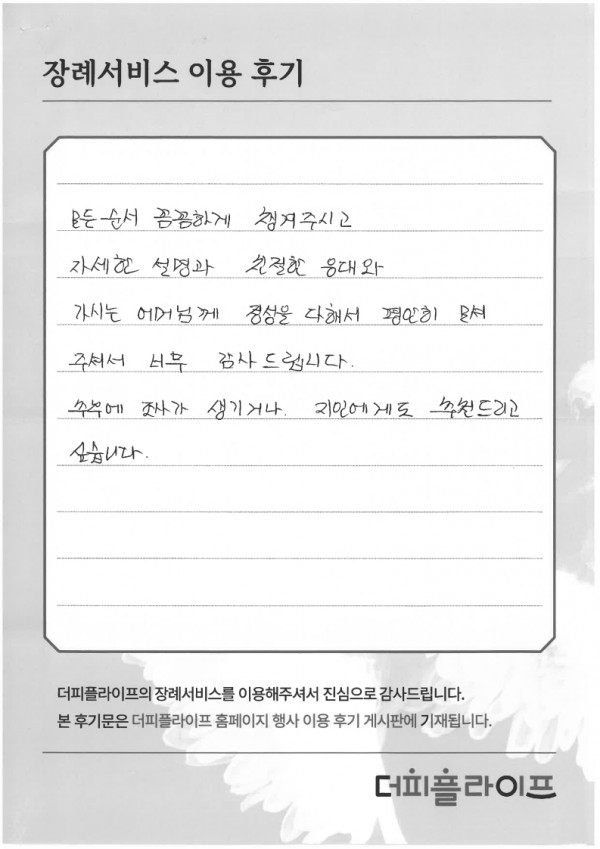 장례서비스 이용 후기
모든 순서 꼼꼼하게 챙겨주시고
자세한 설명과 친절한 응대와
가시는 어머님께 정성을 다해서 평안히 모셔
주셔서 너무 감사드립니다.
추후에 조사가 생기거나. 지인에게도 추천드리고
싶습니다.
더피플라이프의 장례서비스를 이용해주셔서 진심으로 감사드립니다.
본 후기문은 더피플라이프 홈페이지 행사 이용 후기 게시판에 기재됩니다.
더피플라이프